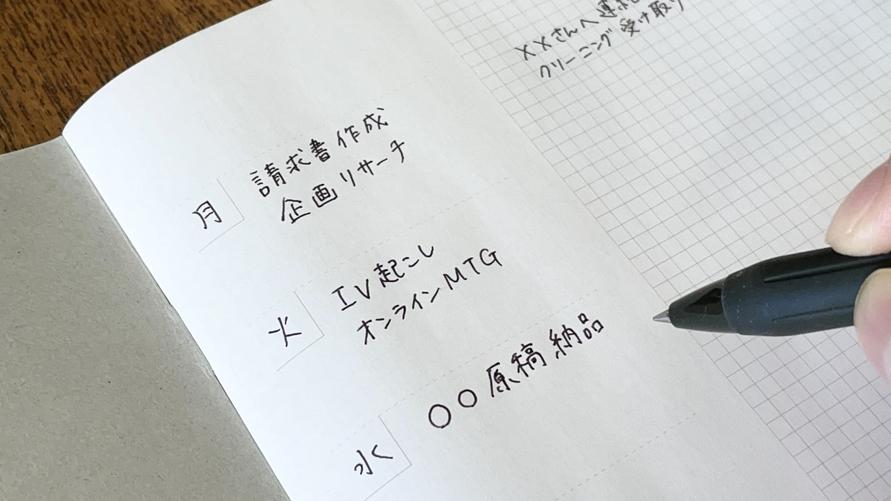 月
請求書作成
企画リサーチ
火
IV起こし
オンラインMTG
水
○○原稿納品
××さんへ連絡
クリーニング受け取り